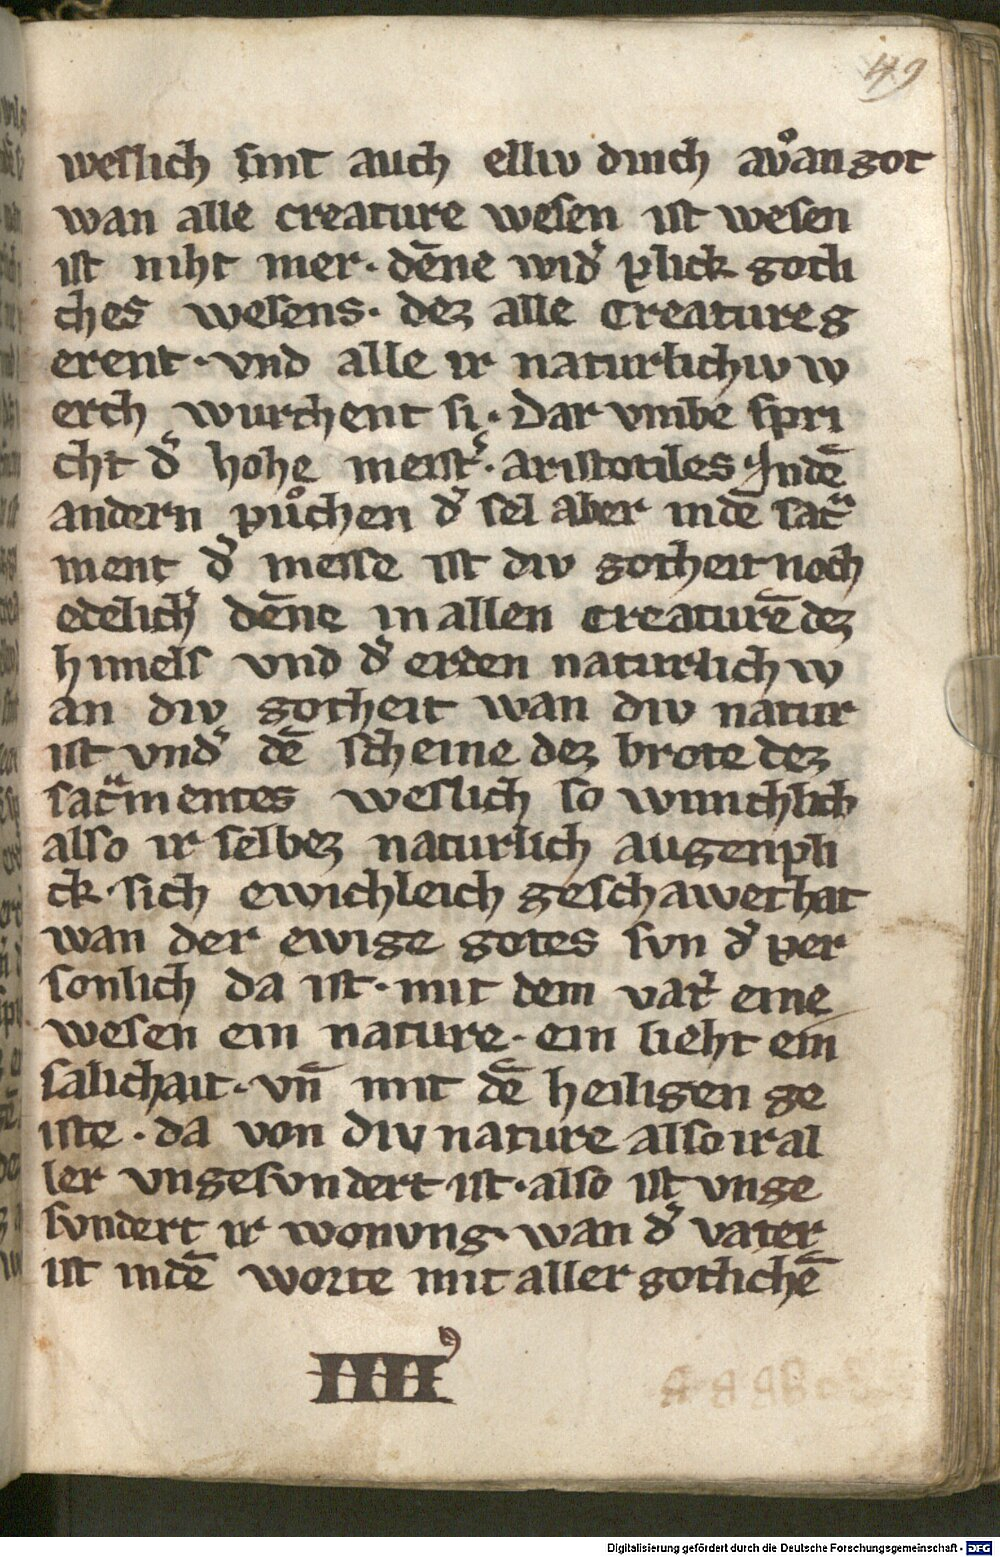 49
weslich sint auch elliv dinch avͦ an got
wan alle creature wesen ist wesen
ist niht mer · dēne wid̾ plick gotli
ches wesens · dez alle Creature g
erent · vnd alle ir naturlichiv w
erch wurchent si · Dar vmbe spri
cht d̾ hohe meist̾ · aristotiles Jndē
andern puͦchen d̾ sel aber indē sac̄ᷓ
ment d̾ messe ist div gotheit noch
edelich̾ dēne in allen creaturē dez
himels vnd d̾ erden naturlich w
an div gotheit wan div natur
ist vnd̾ dē scheine dez brote dez
sac̄ᷓmentes weslich so wunchlich
also ir selbez naturlich augenpli
ck · sich ewichleich geschawet hat
wan der ewige gotes svn d̾ per
sonlich da ist · mit dem vat̾ eine
wesen ein nature · ein lieht ein
salichait · vn̄ mit dē heiligen ge
iste · da von div nature also ir al
ler vngesvndert ist · also ist vnge
svndert ir wonvng · wan d̾ vater
ist indē worte mit aller gotlichē
IIIIꝰ
Digitalisierung gefördert durch die Deutsche Forschungsgemeinschaft - DFG